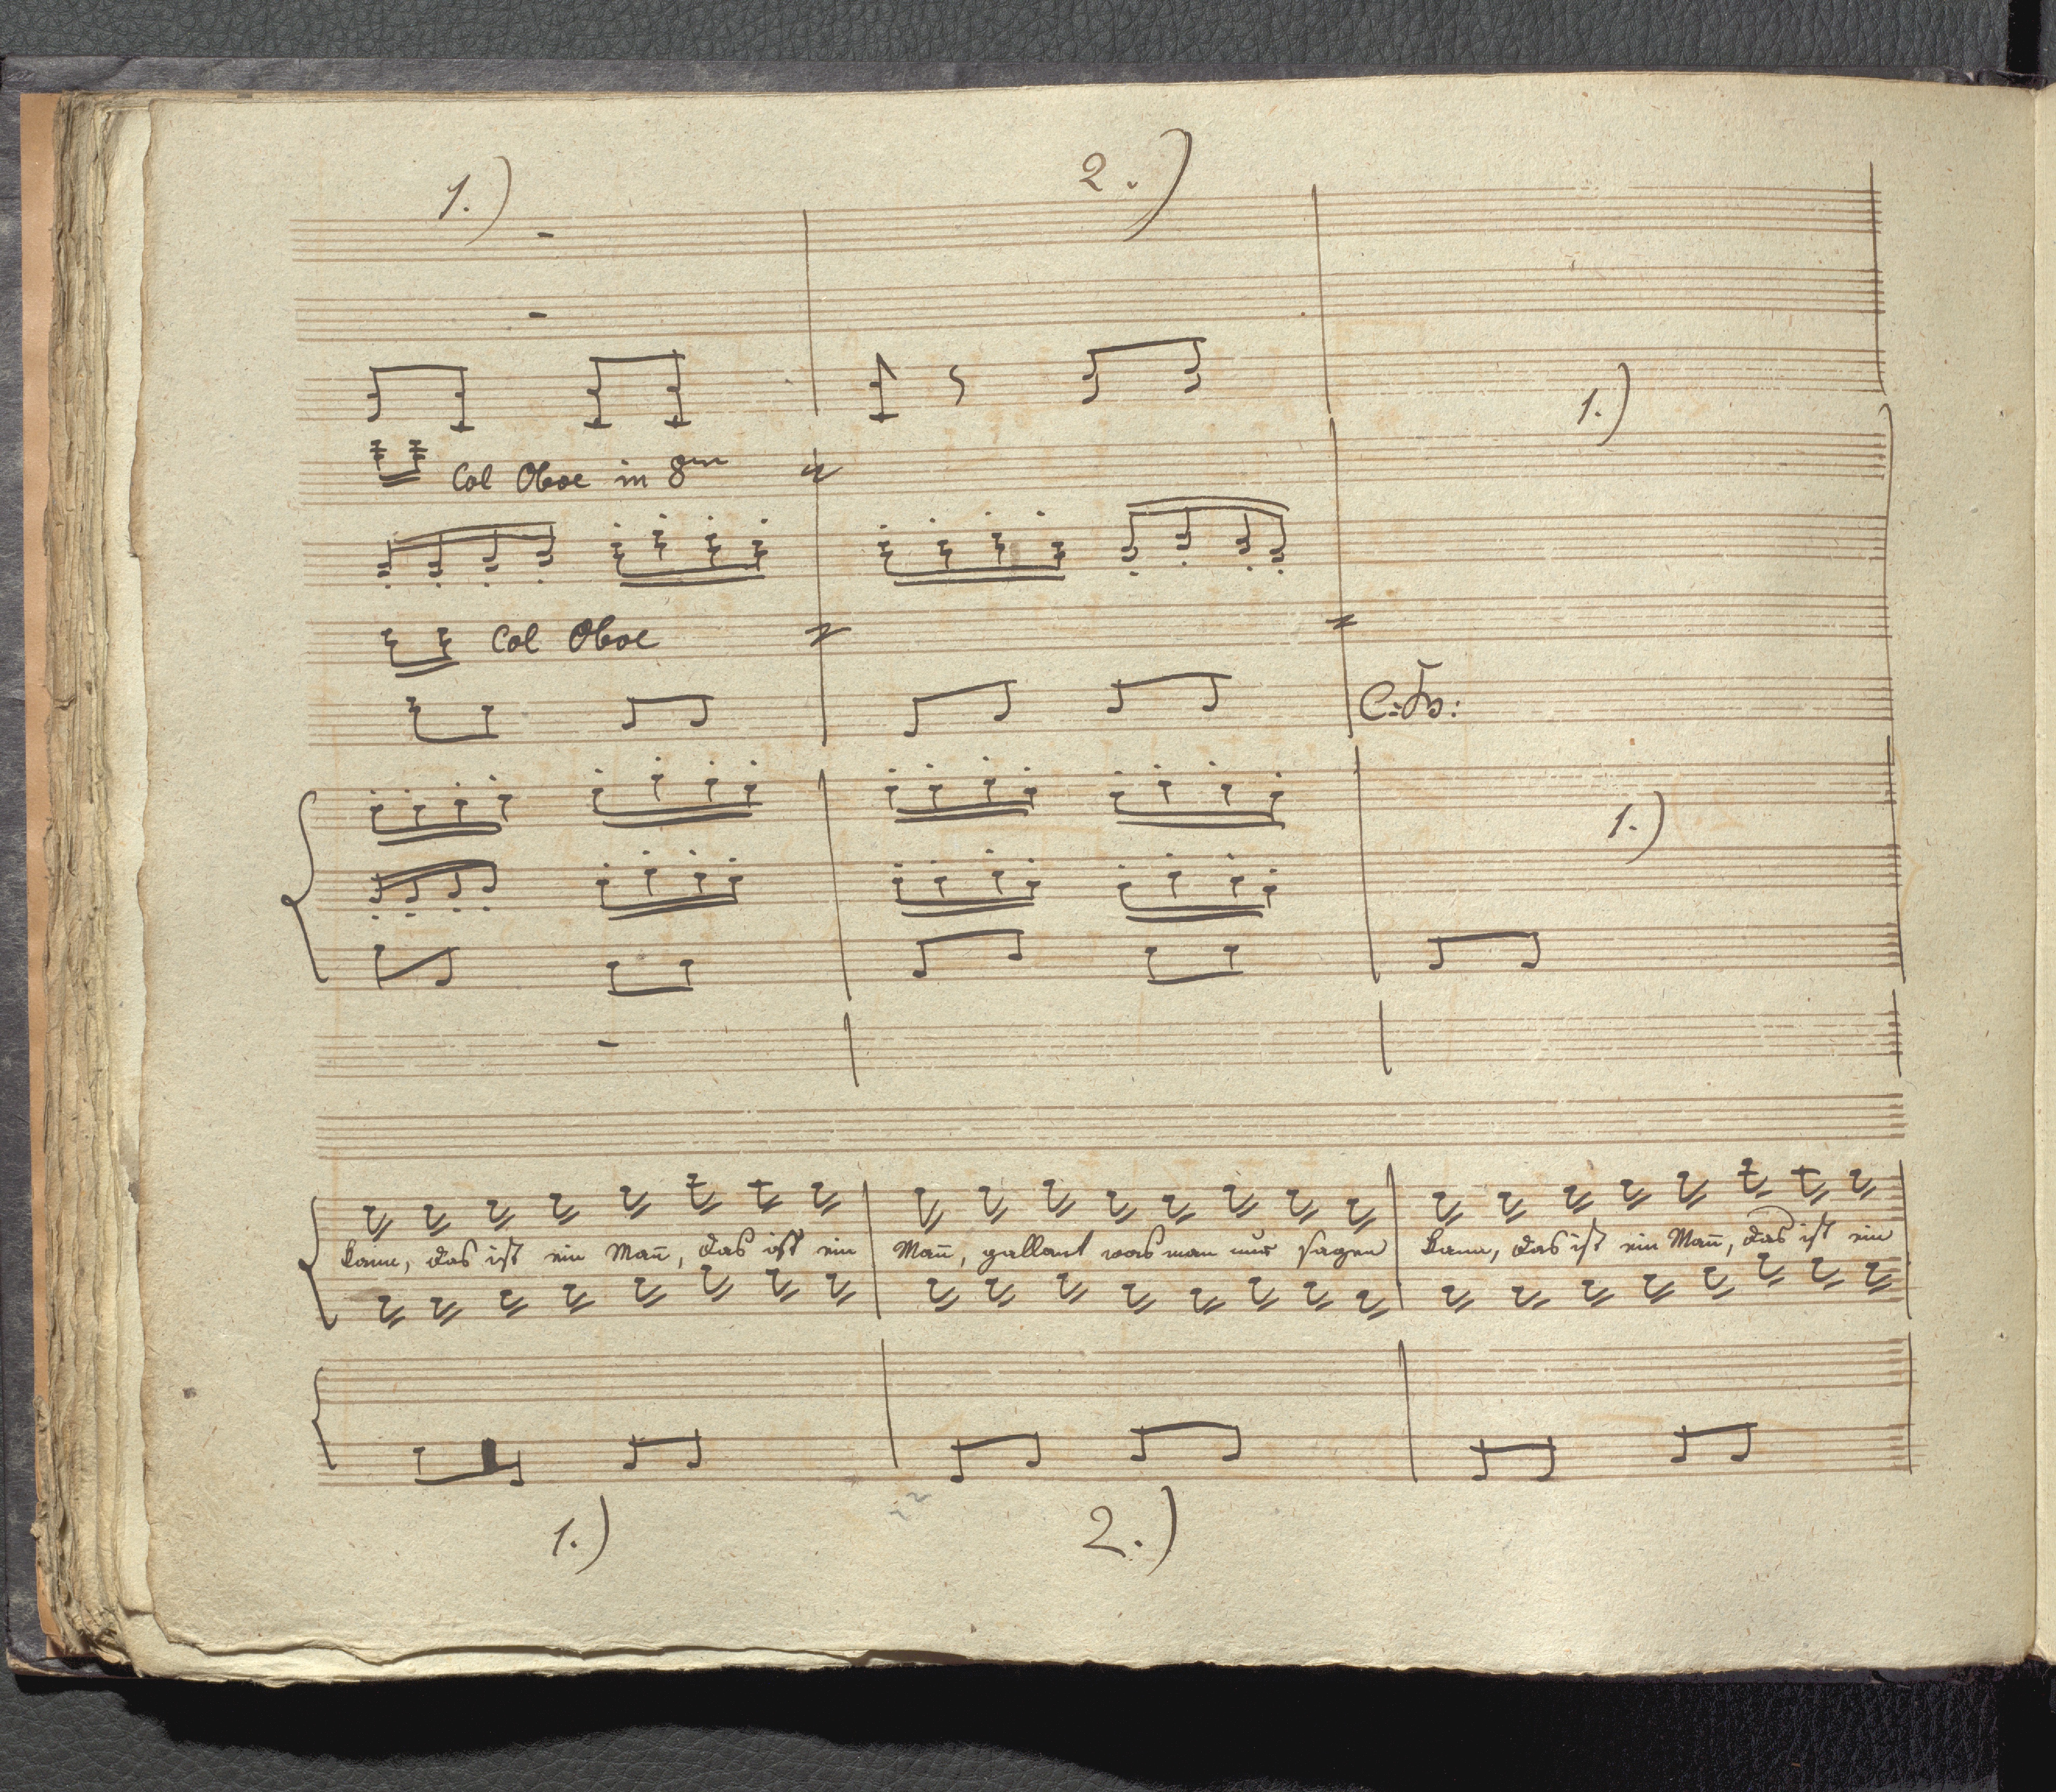 1.) 2.)
1.)
Col Oboe in 8va
Col Oboe
C: B:
1.)
kann, das ist ein Mañ, das ist ein Mañ, gallant was man nur sagen kann, das ist ein Mañ, das ist ein
1.) 2.)